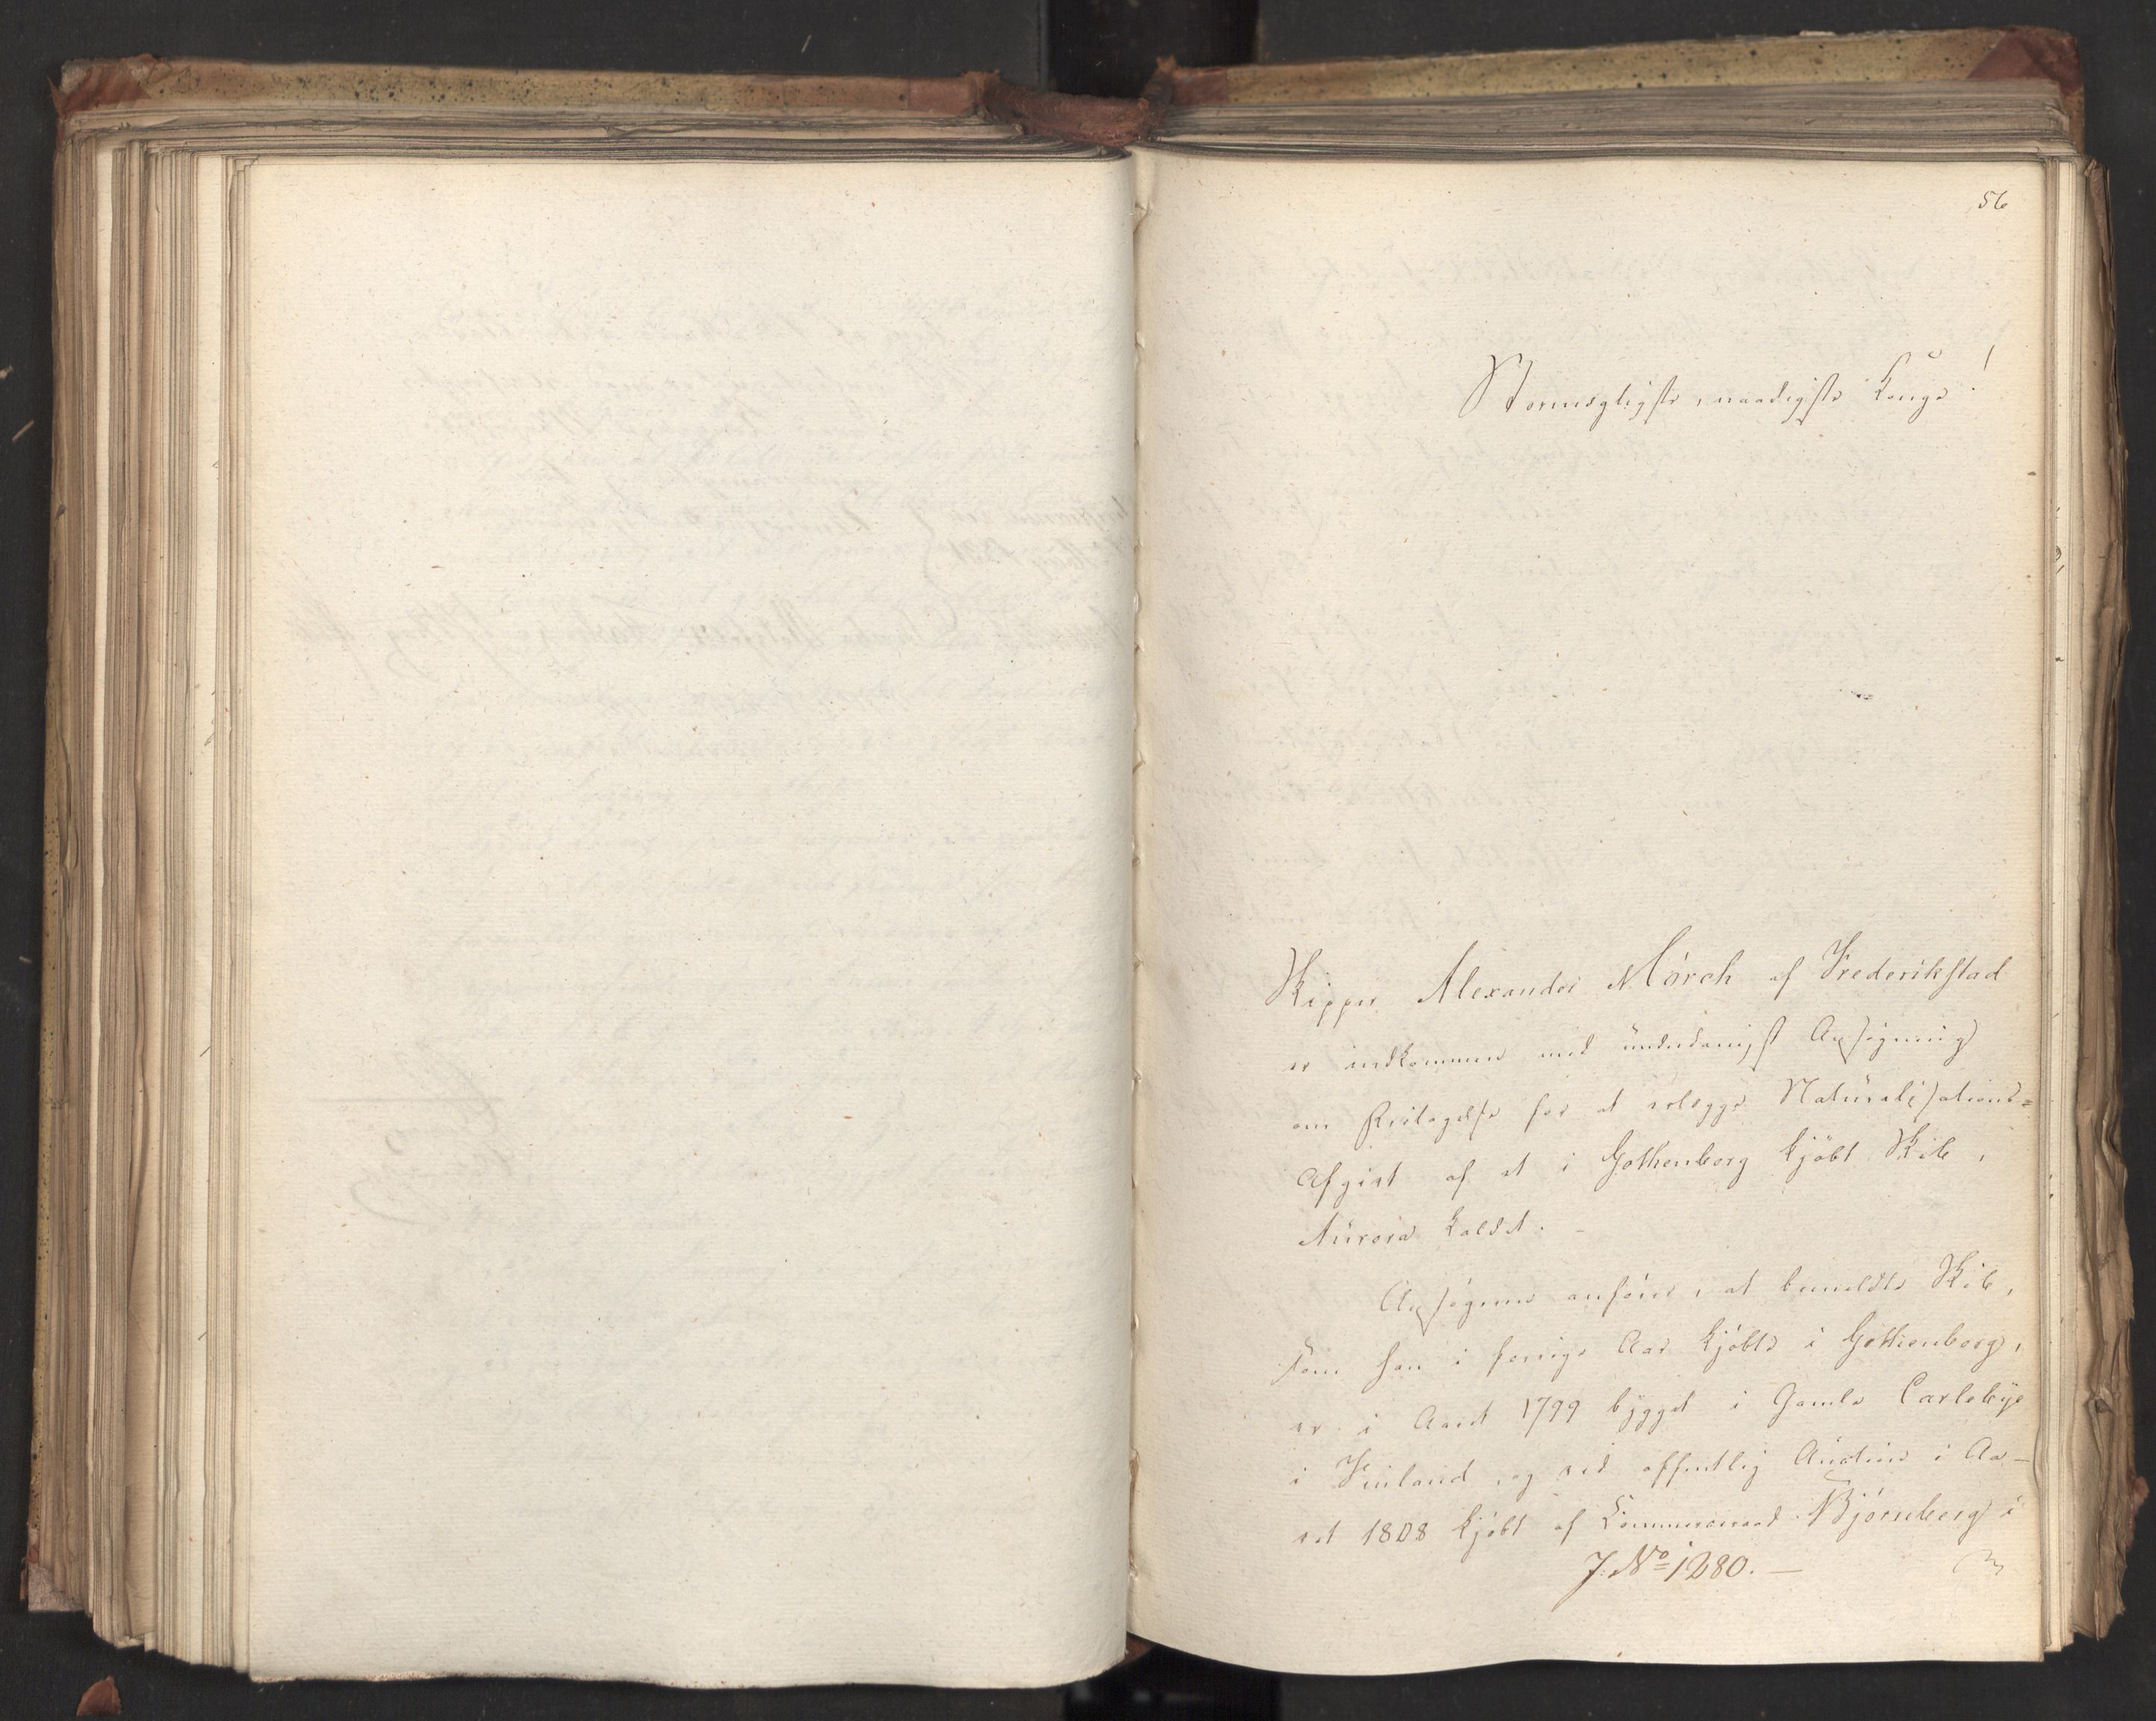 56
Stormægtigste, naadigste Konge!
Skipper Alexander Mörch af Frederikstad
er indkommen med underdanigst Ansögning
om Fritagelse for at erlægge Naturalisations=
Afgivt af et i Gothenborg kjöbt Skib,
Aurora kaldet. –
Ansögeren anförer, at bemeldte Skib,
som han i forrige Aar kjöbte i Gothenborg,
er i Aaret 1799 bygget i Gamle Carlebye
i Finland, og ved offentlig Auction i Aa-
ret 1808 kjöbt af Commerceraad Björnberg i
J. No 1280. —